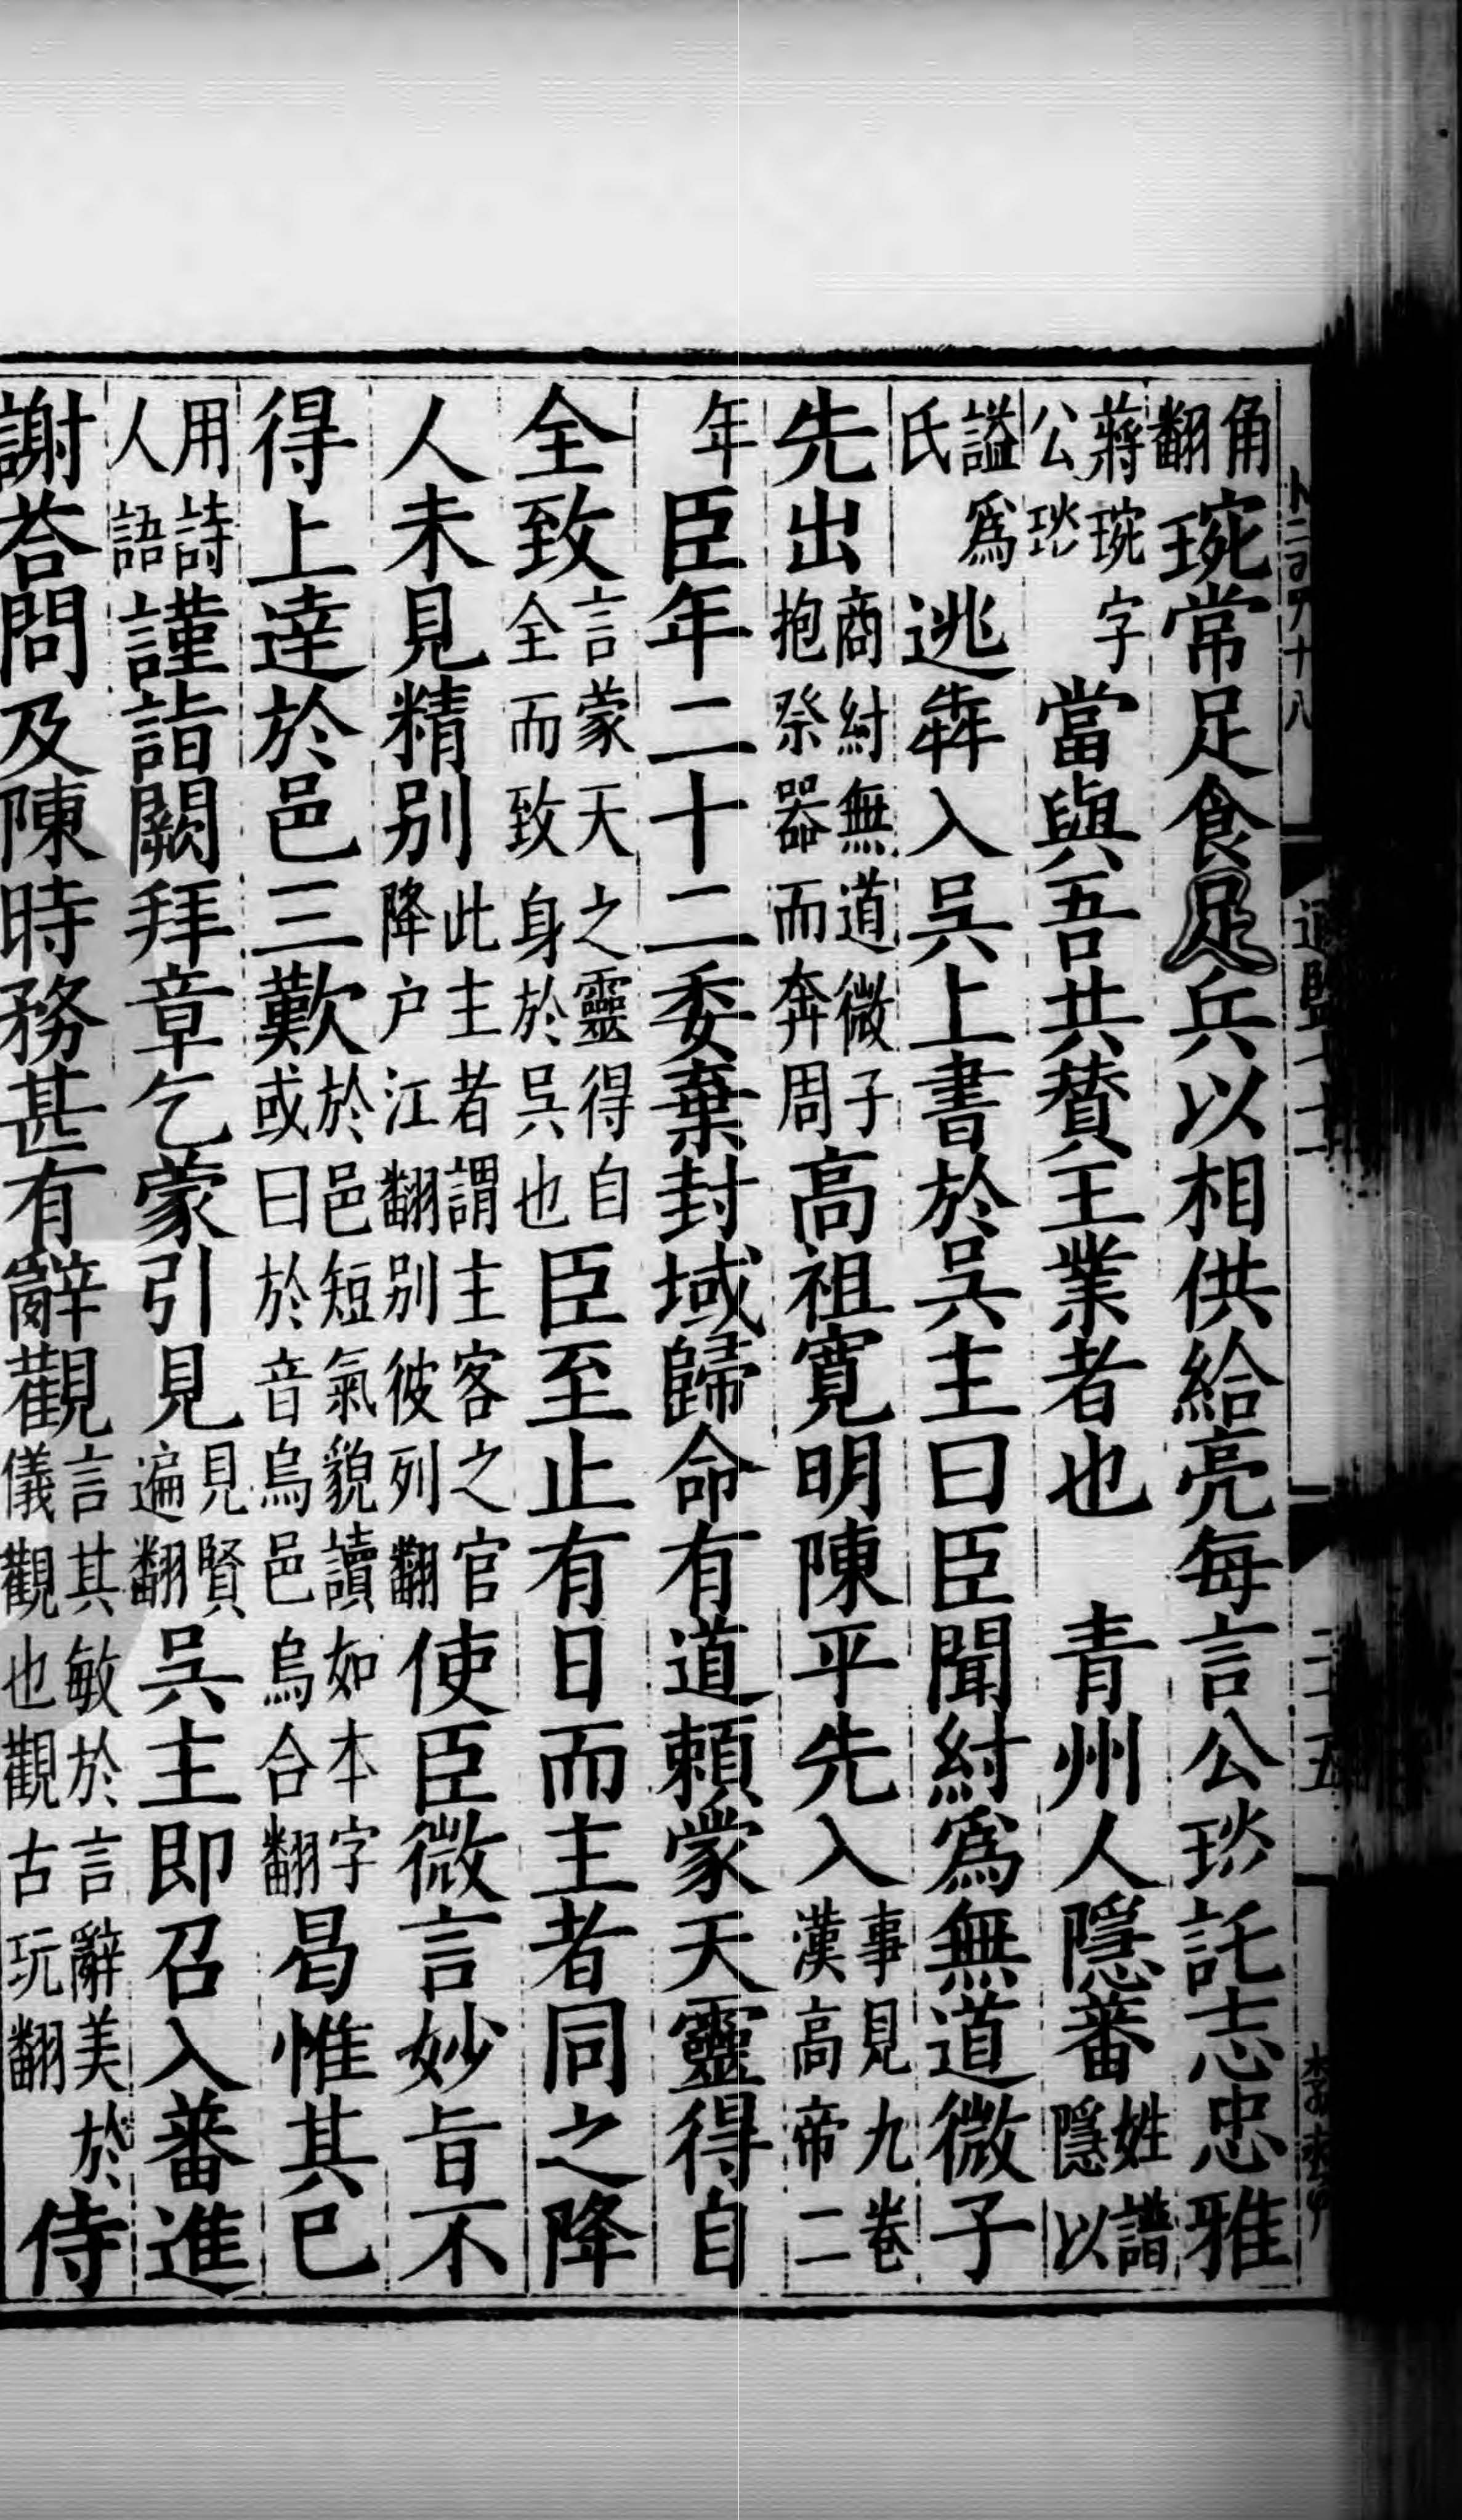 角翻琬常足食足兵以相供給亮每言公琰託志忠雅
蔣琬字公琰當與吾共贊王業者也 青州人隱蕃姓譜隱以
謚爲氏逃犇入吳上書於吳主曰臣聞紂爲無道微子
先出商紂無道微子抱祭器而奔周高祖寬明陳平先入事見九卷漢高帝二
年臣年二十二委棄封域歸命有道賴蒙天靈得自
全致言蒙天之靈得自全而致身於吳也臣至止有日而主者同之降
人未見精别此主者謂主客之官降户江翻别彼列翻使臣微言妙旨不
得上達於邑三歎於邑短氣貌讀如本字或曰於音烏邑烏合翻曷惟其已
用詩人語謹詣闕拜章乞蒙引見見賢遍翻吳主即召入蕃進
謝荅問及陳時務甚有辭觀言其敏於言辭美於儀觀也觀古玩翻侍
二十五